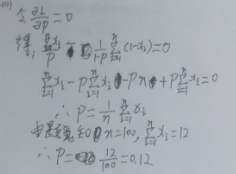 (1)
令 ∂L/∂p = 0
得, Σ_{i=1}^{n} x_i / p - 1/(1-p) Σ_{i=1}^{n} (1-x_i) = 0
Σ_{i=1}^{n} x_i - p Σ_{i=1}^{n} x_i - pn + p Σ_{i=1}^{n} x_i = 0
∴ p = 1/n Σ_{i=1}^{n} x_i
知 n=100, Σ_{i=1}^{n} x_i = 12
∴ p = 12/100 = 0.12